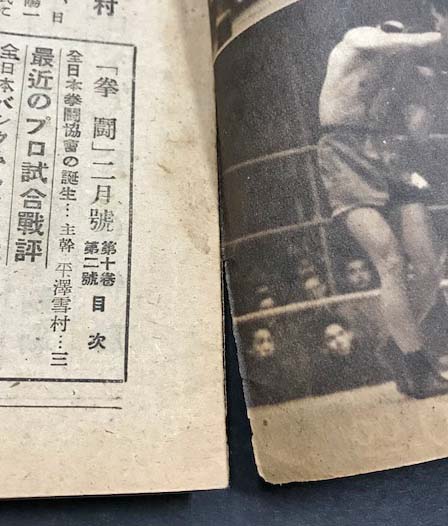 村
「拳鬪」二月號 第十卷 第二號 目次
全日本拳鬪協會の誕生…主幹 平澤雪村…三
最近のプロ試合戰評
全日本バンタム